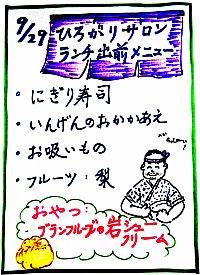 9/29
ひろがりサロン
ランチ出前メニュー
・にぎり寿司
・いんげんのおかかあえ
・お吸いもの
・フルーツ：梨
おやつ：
ブランフルーブの岩シュー
クリーム